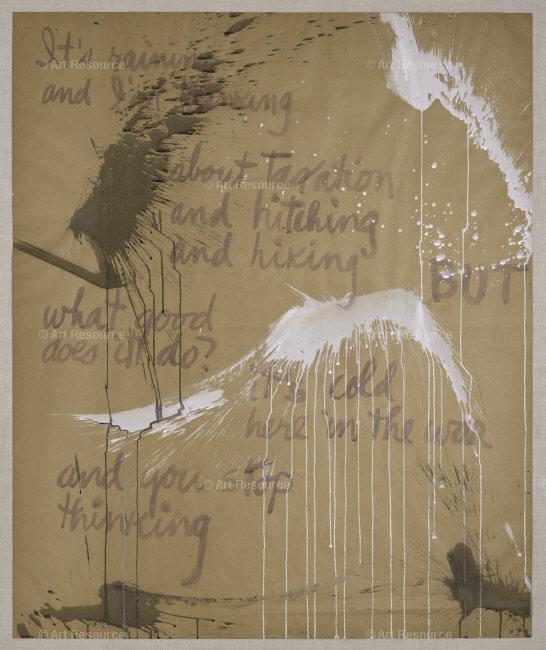 It's raining
and I'm thinking
about taxation
and hitching
and hiking
BUT
what good
does it do?
it's cold
here in the war
and you stop
thinking
© Art Resource
© Art Resource
© Art Resource
© Art Resource
© Art Resource
© Art Resource
© Art Resource
© Art Resource